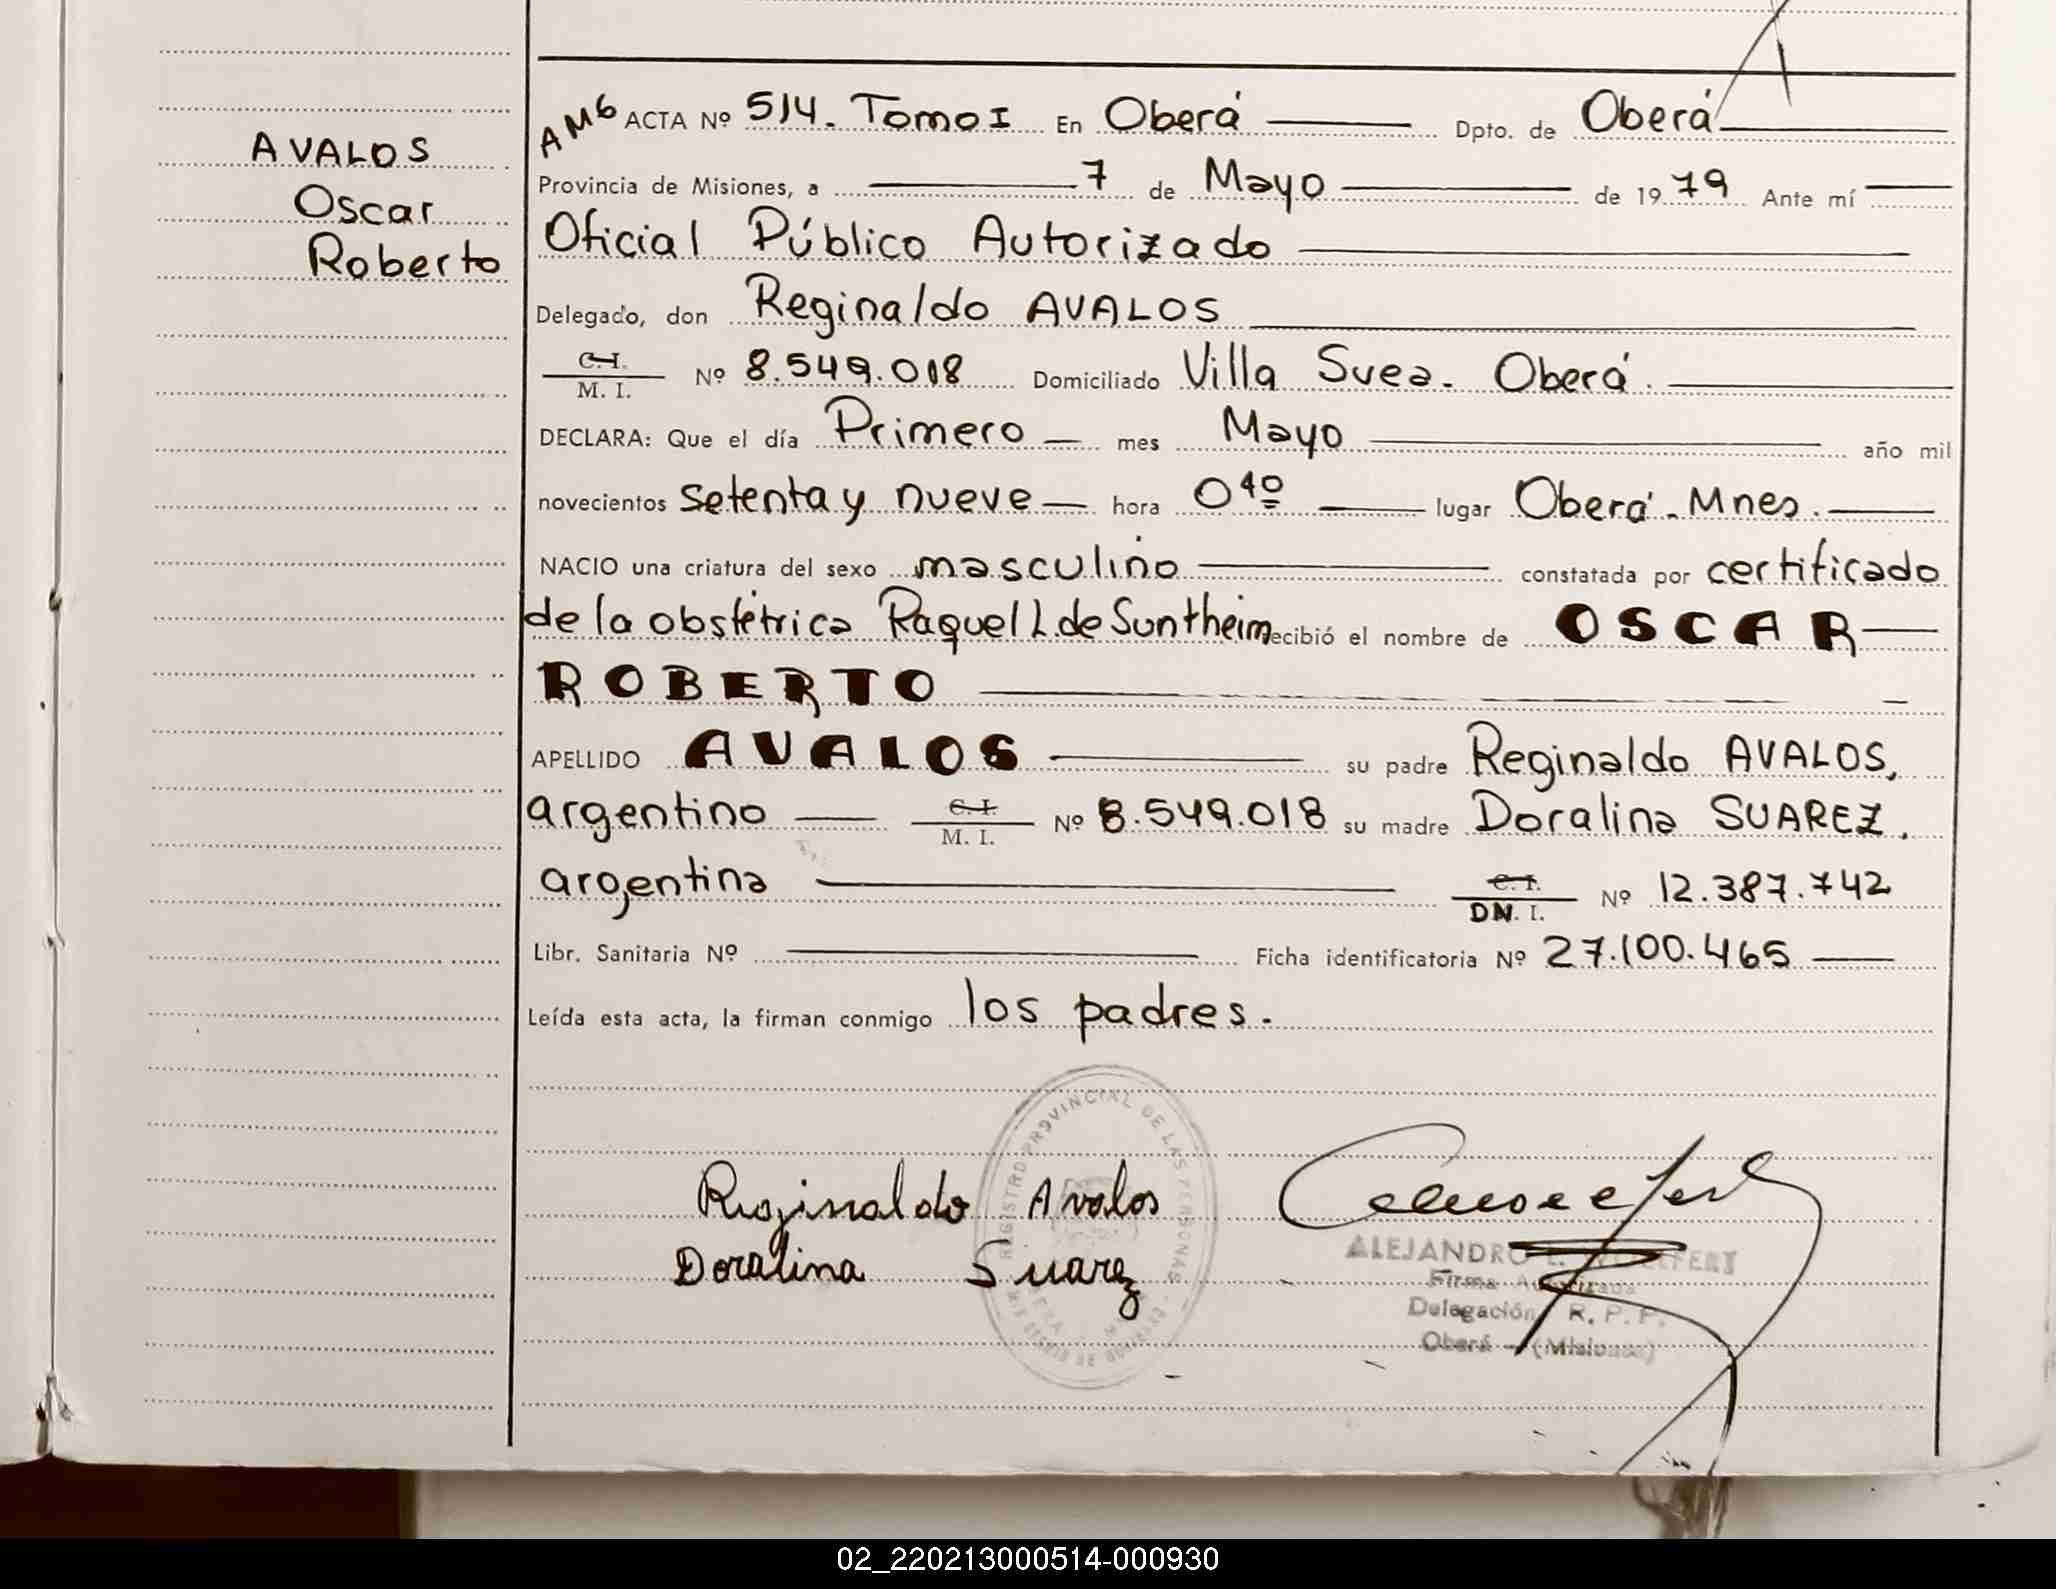 AVALOS
Oscar
Roberto
AMG ACTA Nº 514. Tomo I En Oberá Dpto. de Oberá
Provincia de Misiones, a 7 de Mayo de 1979 Ante mí
Oficial Público Autorizado
Delegado, don Reginaldo AVALOS
C.I. / M. I. Nº 8.549.018 Domiciliado Villa Svea. Oberá.
DECLARA: Que el día Primero mes Mayo año mil
novecientos setenta y nueve hora 0 40 lugar Oberá. Mnes.
NACIO una criatura del sexo masculino constatada por certificado
de la obstétrica Raquel L. de Suntheim ecibió el nombre de OSCAR
ROBERTO
APELLIDO AVALOS su padre Reginaldo AVALOS,
argentino C.I. / M. I. Nº 8.549.018 su madre Doralina SUAREZ,
argentina C.I. / DN. I. Nº 12.387.742
Libr. Sanitaria Nº Ficha identificatoria Nº 27.100.465
Leída esta acta, la firman conmigo los padres.
REGISTRO PROVINCIAL DE LAS PERSONAS
Rejinaldo Avalos
Doralina Suarez
ALEJANDRO
Firma Autorizada
Delegación R. P. P.
Oberá - (Misiones)
02_220213000514-000930